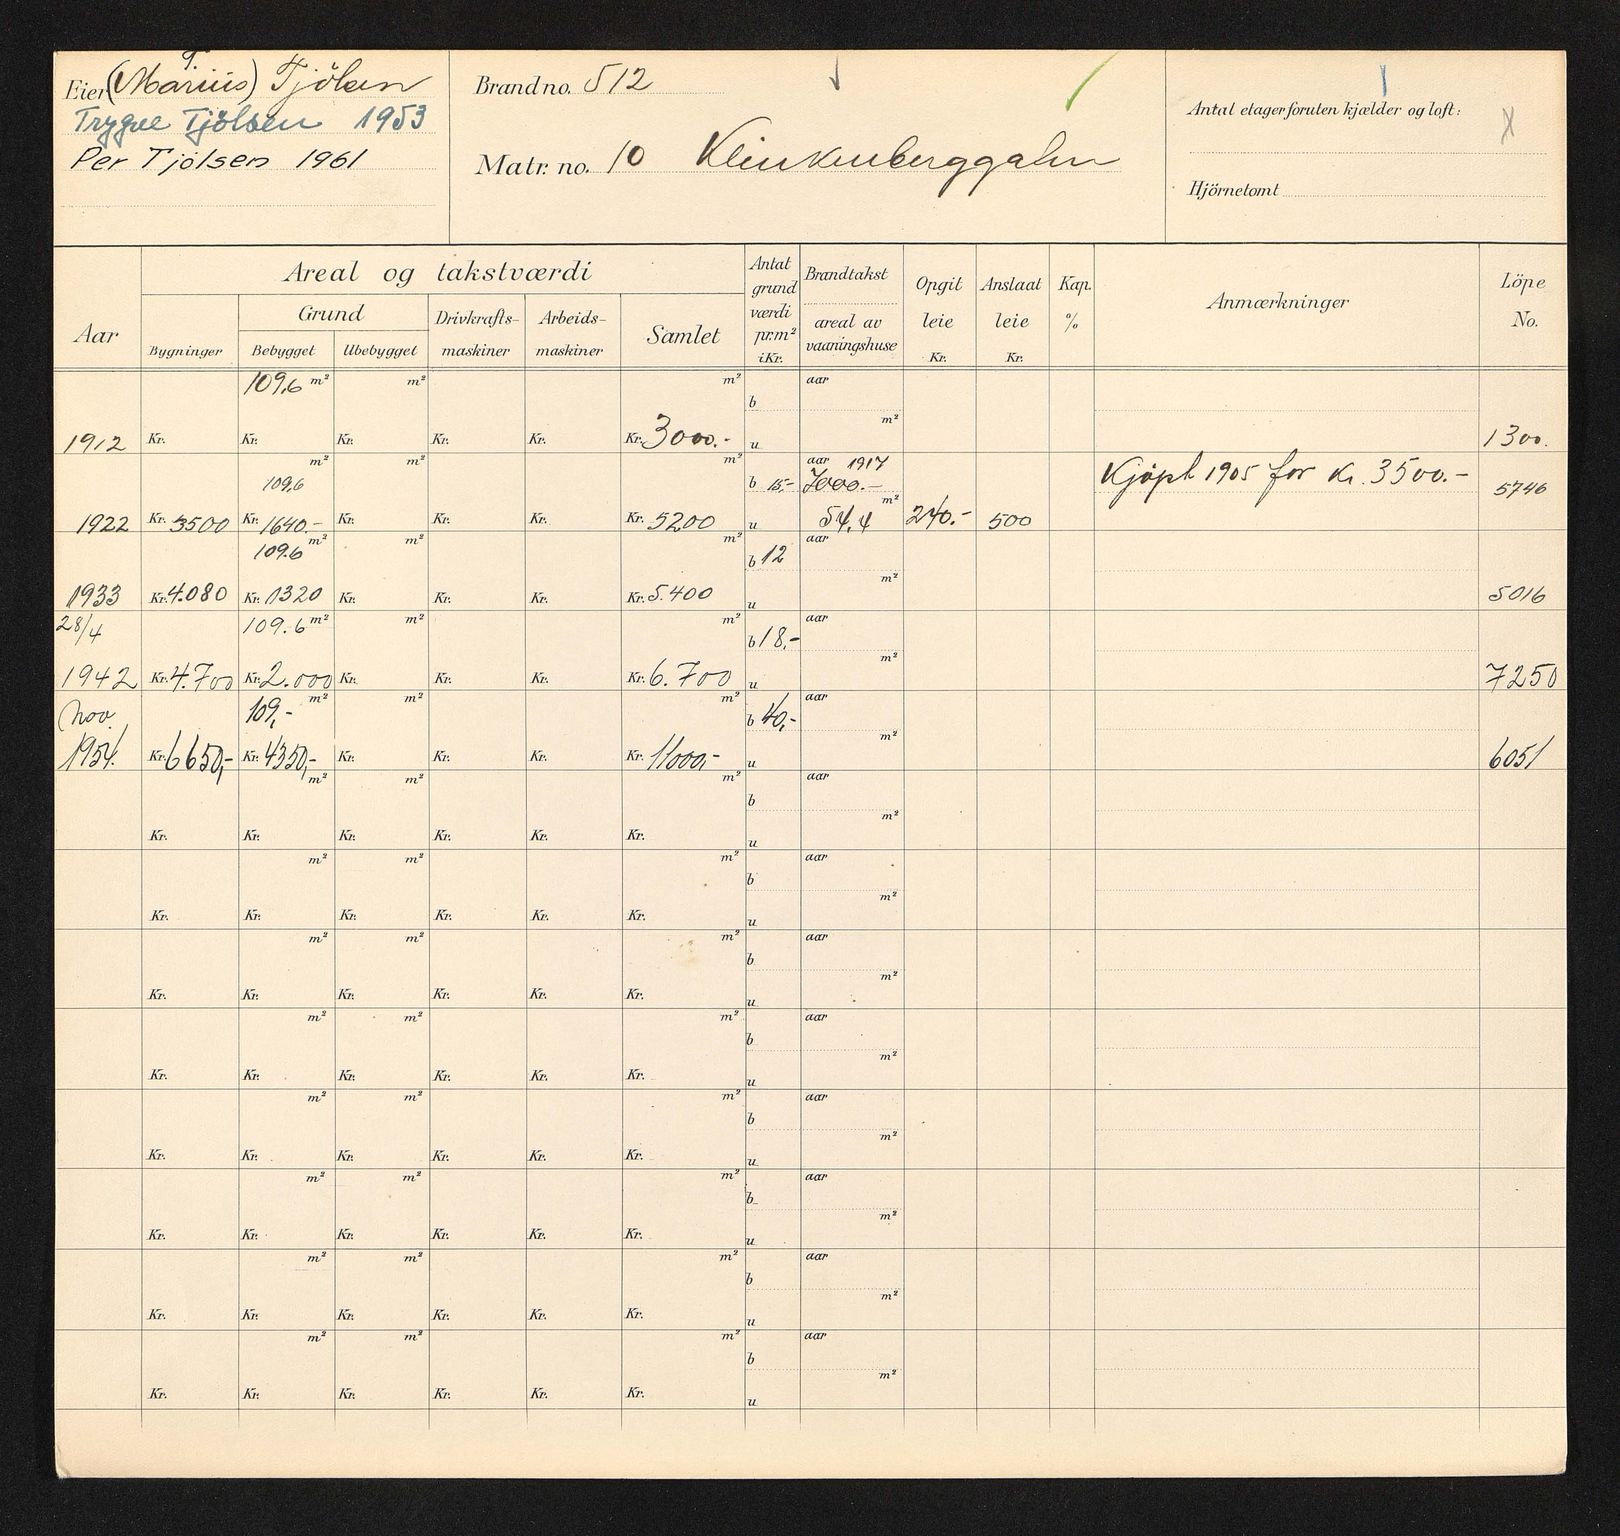 T.
Eier (Marius) Tjölsen
Trygve Tjölsen 1953
Per Tjölsen 1961
Brand no. 512
Matr. no. 10 Klinkenberggaten
Antal etager foruten kjælder og loft:
Hjörnetomt
Aar
Areal og takstværdi
Bygninger
Grund
Bebygget Ubebygget
Drivkrafts-
maskiner
Arbeids-
maskiner
Samlet
Antat
grund
værdi
pr.m²
i Kr.
Brandtakst
areal av
vaaningshuse
Opgit
leie
Kr.
Anslaat
leie
Kr.
Kap.
%
Anmærkninger
Löpe
No.
109,6 m² m² m² aar
b
m²
1912 Kr. Kr. Kr. Kr. Kr. Kr. 3000.- u 1300.
m² m² m² aar 1917
109,6 b 15,- 7000.- Kjöpt 1905 for Kr. 3500.- 5746
m²
1922 Kr. 3500 Kr. 1640.- Kr. Kr. Kr. Kr. 5200 u 54,4 240.- 500
109.6 m² m² m² aar
b 12
m²
1933 Kr. 4.080 Kr. 1320 Kr. Kr. Kr. Kr. 5.400 u 5016
28/4 109.6 m² m² m² aar
b 18,-
m²
1942 Kr. 4.700 Kr. 2.000 Kr. Kr. Kr. Kr. 6.700 u 7250
Nov. 109,- m² m² m² aar
b 40,-
m²
1954. Kr. 6650,- Kr. 4350,- Kr. Kr. Kr. Kr. 11000,- u 6051
m² m² m² aar
b
m²
Kr. Kr. Kr. Kr. Kr. Kr. u
m² m² m² aar
b
m²
Kr. Kr. Kr. Kr. Kr. Kr. u
m² m² m² aar
b
m²
Kr. Kr. Kr. Kr. Kr. Kr. u
m² m² m² aar
b
m²
Kr. Kr. Kr. Kr. Kr. Kr. u
m² m² m² aar
b
m²
Kr. Kr. Kr. Kr. Kr. Kr. u
m² m² m² aar
b
m²
Kr. Kr. Kr. Kr. Kr. Kr. u
m² m² m² aar
b
m²
Kr. Kr. Kr. Kr. Kr. Kr. u
m² m² m² aar
b
m²
Kr. Kr. Kr. Kr. Kr. Kr. u